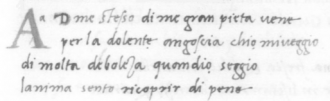 A D me stesso di me gran pieta vene
per la dolente angoscia chio miveggio
di molta deboleza quandio seggio
lanima sento ricoprir di pene